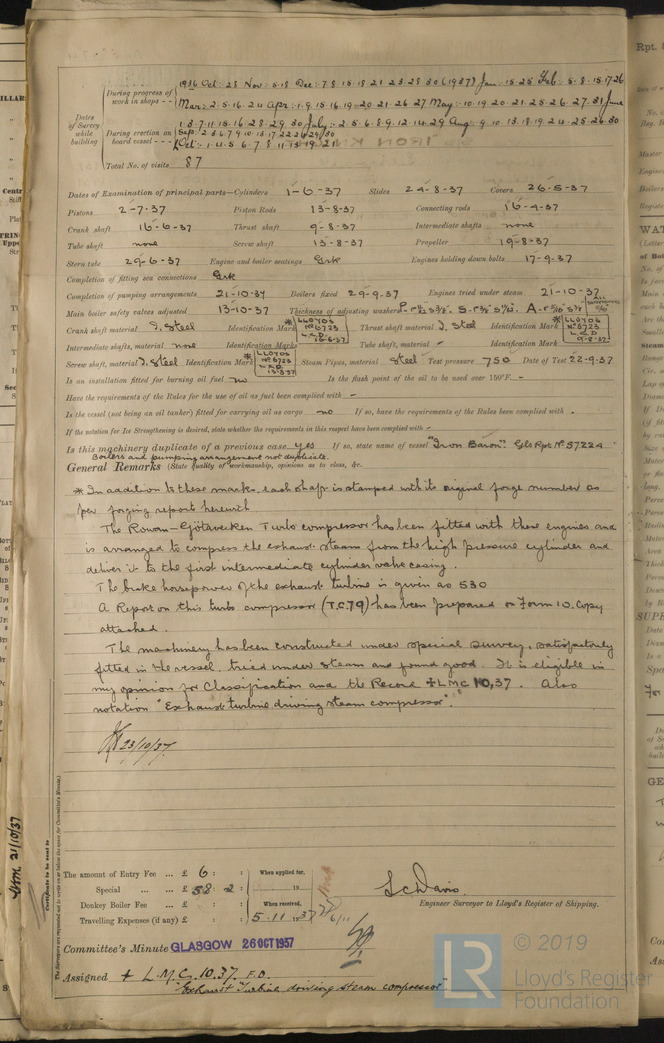 1936 Oct: 28 Nov: 5.18 Dec: 7.8.15.18.21.23.28.30 (1937) Jan: 15.25 Feb: 5.8.15.17.26
During progress of work in shops - -
Mar: 2.5.16.24 Apr: 1.9.15.16.19.20.21.26.27 May: 10.19.20.21.25.26.27.31 June
Dates of Survey while building
1.3.7.11.15.16.28.29.30 July: 2.5.6.8.9.12.14.29 Aug: 9.10.13.18.19.24.25.26.30
During erection on board vessel - - -
Sep: 2.3.6.7.9.10.13.17.22.26.29.30
Oct: 1.4.5.6.7.8.11.13.19.21
Total No. of visits 87
Dates of Examination of principal parts—Cylinders 1-6-37 Slides 24-8-37 Covers 26-5-37
Pistons 2-7-37 Piston Rods 13-8-37 Connecting rods 16-4-37
Crank shaft 16-6-37 Thrust shaft 9-8-37 Intermediate shafts none
Tube shaft none Screw shaft 13-8-37 Propeller 19-8-37
Stern tube 29-6-37 Engine and boiler seatings Grk Engines holding down bolts 17-9-37
Completion of fitting sea connections Grk
Completion of pumping arrangements 21-10-37 Boilers fixed 29-9-37 Engines tried under steam 21-10-37
Main boiler safety valves adjusted 13-10-37 Thickness of adjusting washers
Crank shaft material I. Steel Identification Mark * LLOYDS No 6723 L.C.D 16-6-37 Thrust shaft material I. Steel Identification Mark LLOYDS No 6723 L.C.D 9-8-37
Intermediate shafts, material none Identification Marks Tube shaft, material - Identification Mark
Screw shaft, material I. Steel Identification Mark * LLOYDS No 6723 L.C.D 13-8-37 Steam Pipes, material Steel Test pressure 750 Date of Test 22-9-37
Is an installation fitted for burning oil fuel no Is the flash point of the oil to be used over 150°F. -
Have the requirements of the Rules for the use of oil as fuel been complied with -
Is the vessel (not being an oil tanker) fitted for carrying oil as cargo no If so, have the requirements of the Rules been complied with -
If the notation for Ice Strengthening is desired, state whether the requirements in this respect have been complied with -
Is this machinery duplicate of a previous case yes If so, state name of vessel "Iron Baron". Gls Rpt. No 57224
Boilers and pumping arrangement not duplicate.
General Remarks (State quality of workmanship, opinions as to class, &c.
* In addition to these marks, each shaft is stamped with its original forge number as
per forging report herewith
The Rowan-Götaverken Turbo compressor has been fitted with these engines and
is arranged to compress the exhaust steam from the high pressure cylinder and
deliver it to the first intermediate cylinder valve casing.
The brake horsepower of the exhaust turbine is given as 530
A Report on this turbo compressor (T.C.79) has been prepared on Form 10. Copy
attached.
The machinery has been constructed under special survey, satisfactorily
fitted in the vessel, tried under steam and found good. It is eligible in
my opinion for Classification and the Record + LMC 10,37. Also
notation "Exhaust turbine driving steam compressor".
23/10/37
21/10/37
Certificate to be sent to
The amount of Entry Fee ... £ 6 : :
When applied for,
Special ... ... £ 58 : 2 :
19
Donkey Boiler Fee ... £ : :
When received,
Travelling Expenses (if any) £ : :
5.11.1937
Engineer Surveyor to Lloyd's Register of Shipping.
Committee's Minute GLASGOW 26 OCT 1937
Assigned + L.M.C. 10.37. F.D.
"Exhaust Turbine driving steam compressor"
LR © 2019
Lloyd's Register
Foundation